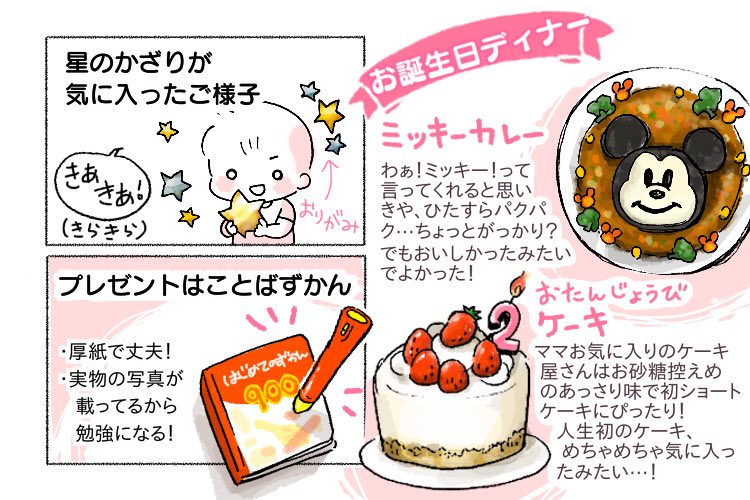 星のかざりが
気に入ったご様子
きあ
きあ!
(きらきら)
おりがみ
お誕生日ディナー
ミッキーカレー
わぁ!ミッキー!って
言ってくれると思い
きや、ひたすらパクパ
ク…ちょっとがっかり?
でもおいしかったみたい
でよかった!
プレゼントはことばずかん
・厚紙で丈夫!
・実物の写真が
載ってるから
勉強になる!
はじめてのずかん
900
2
おたんじょうび
ケーキ
ママお気に入りのケーキ
屋さんはお砂糖控えめ
のあっさり味で初ショート
ケーキにぴったり!
人生初のケーキ、
めちゃめちゃ気に入っ
たみたい…!